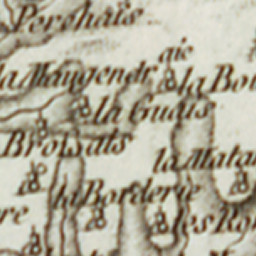 Perchaïs
gie
la Maugendr
la Bou
la Guais
Broisats
la Matar
la Borderie
re
les Ro